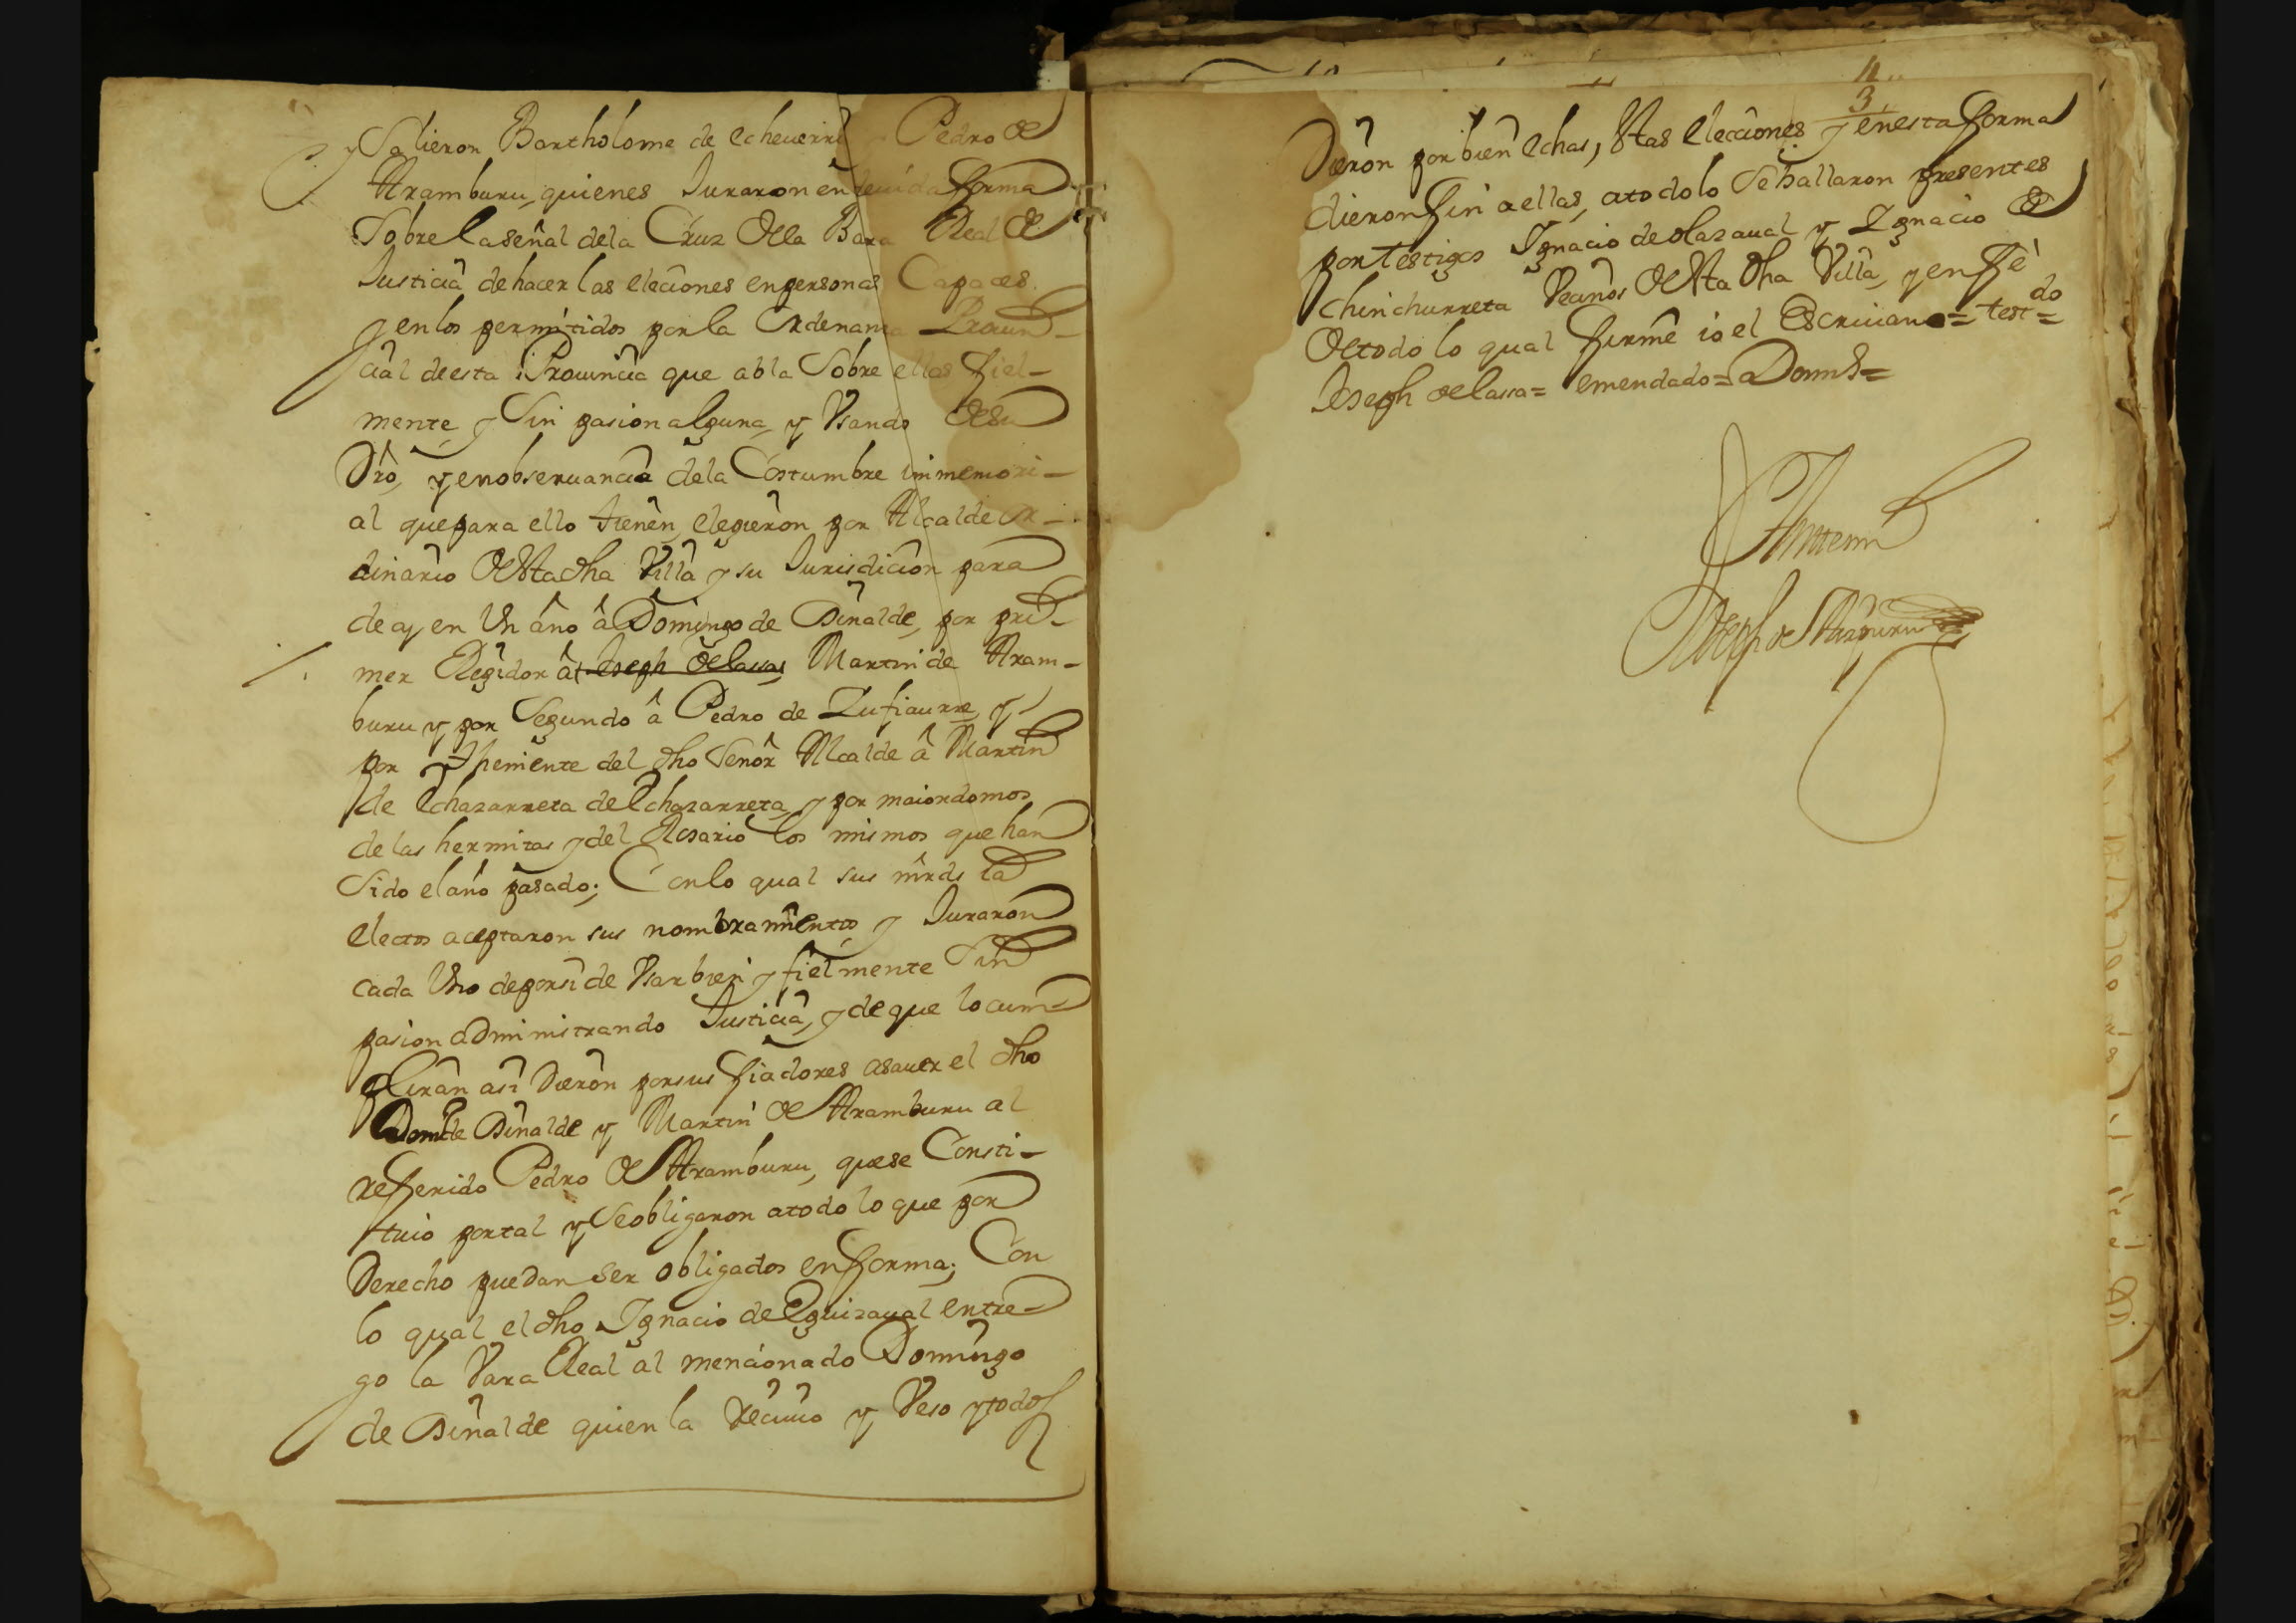 y Salieron Bartholome de echeuerri Pedro de
Aramburu, quienes Juraron en deuida forma
Sobre la señal dela Cruz de la Bara Real de
Justicia de hacer las eleciones en personas Capaces
y en los permitidos por la Ordenanza Prouin-
cial de esta Prouincia que abla Sobre ellos fiel-
mente y Sin pasion alguna, y Vsando de su
Dro, y en obseruancia dela Costumbre inmemori-
al que para ello tienen, elegieron por Alcalde or-
dinario de esta dha Villa y su Jurisdicion para
de oy en Un año â Domingo de Dinalde, por pri-
mer Regidor â Joseph de lassa, Martin de Aram-
buru y por Segundo â Pedro de Zufiaurre, y
por Theniente del dho Señor Alcalde â Martin
de echazarreta de echazarreta, y por maiordomos
de las hermitas y del Rosario los mismos que han
Sido el año pasado; Con lo qual sus mrds ia
electos aceptaron sus nombramientos y Juraron
cada Uno de por si de Vsar bien y fielmente Sin
pasion administrando Justicia, y de que lo cum-
pliran asi Dieron por sus fiadores asauer el dho
Domo de Dinalde y Martin de Aramburu al
referido Pedro de Aramburu, que se Consti-
tuio por tal y Se obligaron a todo lo que por
Derecho puedan ser obligados en forma; Con
lo qual el dho Ignacio de Eguizaual entre-
go la Vara Real al mencionado Domingo
de Dinalde quien la reciuio y Veso y todos
4
3
Dieron por bien echas, estas elecciones y en esta forma
dieron fin a ellas, a todo lo Se hallaron presentes
por testigos Ignacio de olazaual y Ignacio de
chinchurreta Vecinos de esta dha Villa, y en fè
de todo lo qual firmè io el Escriuano = testdo =
Joseph de lassa = emendado = Domo =
Ante mi
Joseph de Aizpuru